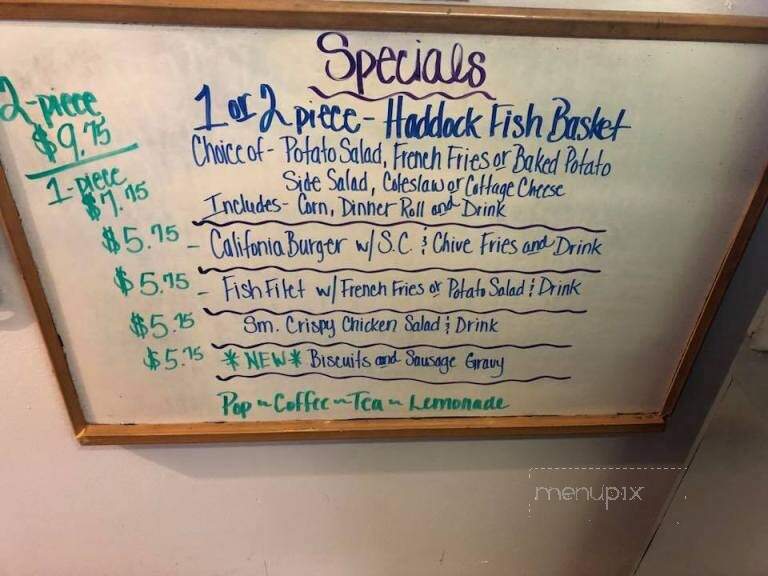 Specials
2-piece
$9.75
1-piece
$7.75
1 or 2 piece - Haddock Fish Basket
Choice of - Potato Salad, French Fries or Baked Potato
Side Salad, Coleslaw or Cottage Cheese
Includes - Corn, Dinner Roll and Drink
$5.75 - Califonia Burger w/ S.C. & Chive Fries and Drink
$5.75 - Fish Filet w/ French Fries or Potato Salad & Drink
$5.75 Sm. Crispy Chicken Salad & Drink
$5.75 *NEW* Biscuits and Sausage Gravy
Pop ~ Coffee ~ Tea ~ Lemonade
menupix